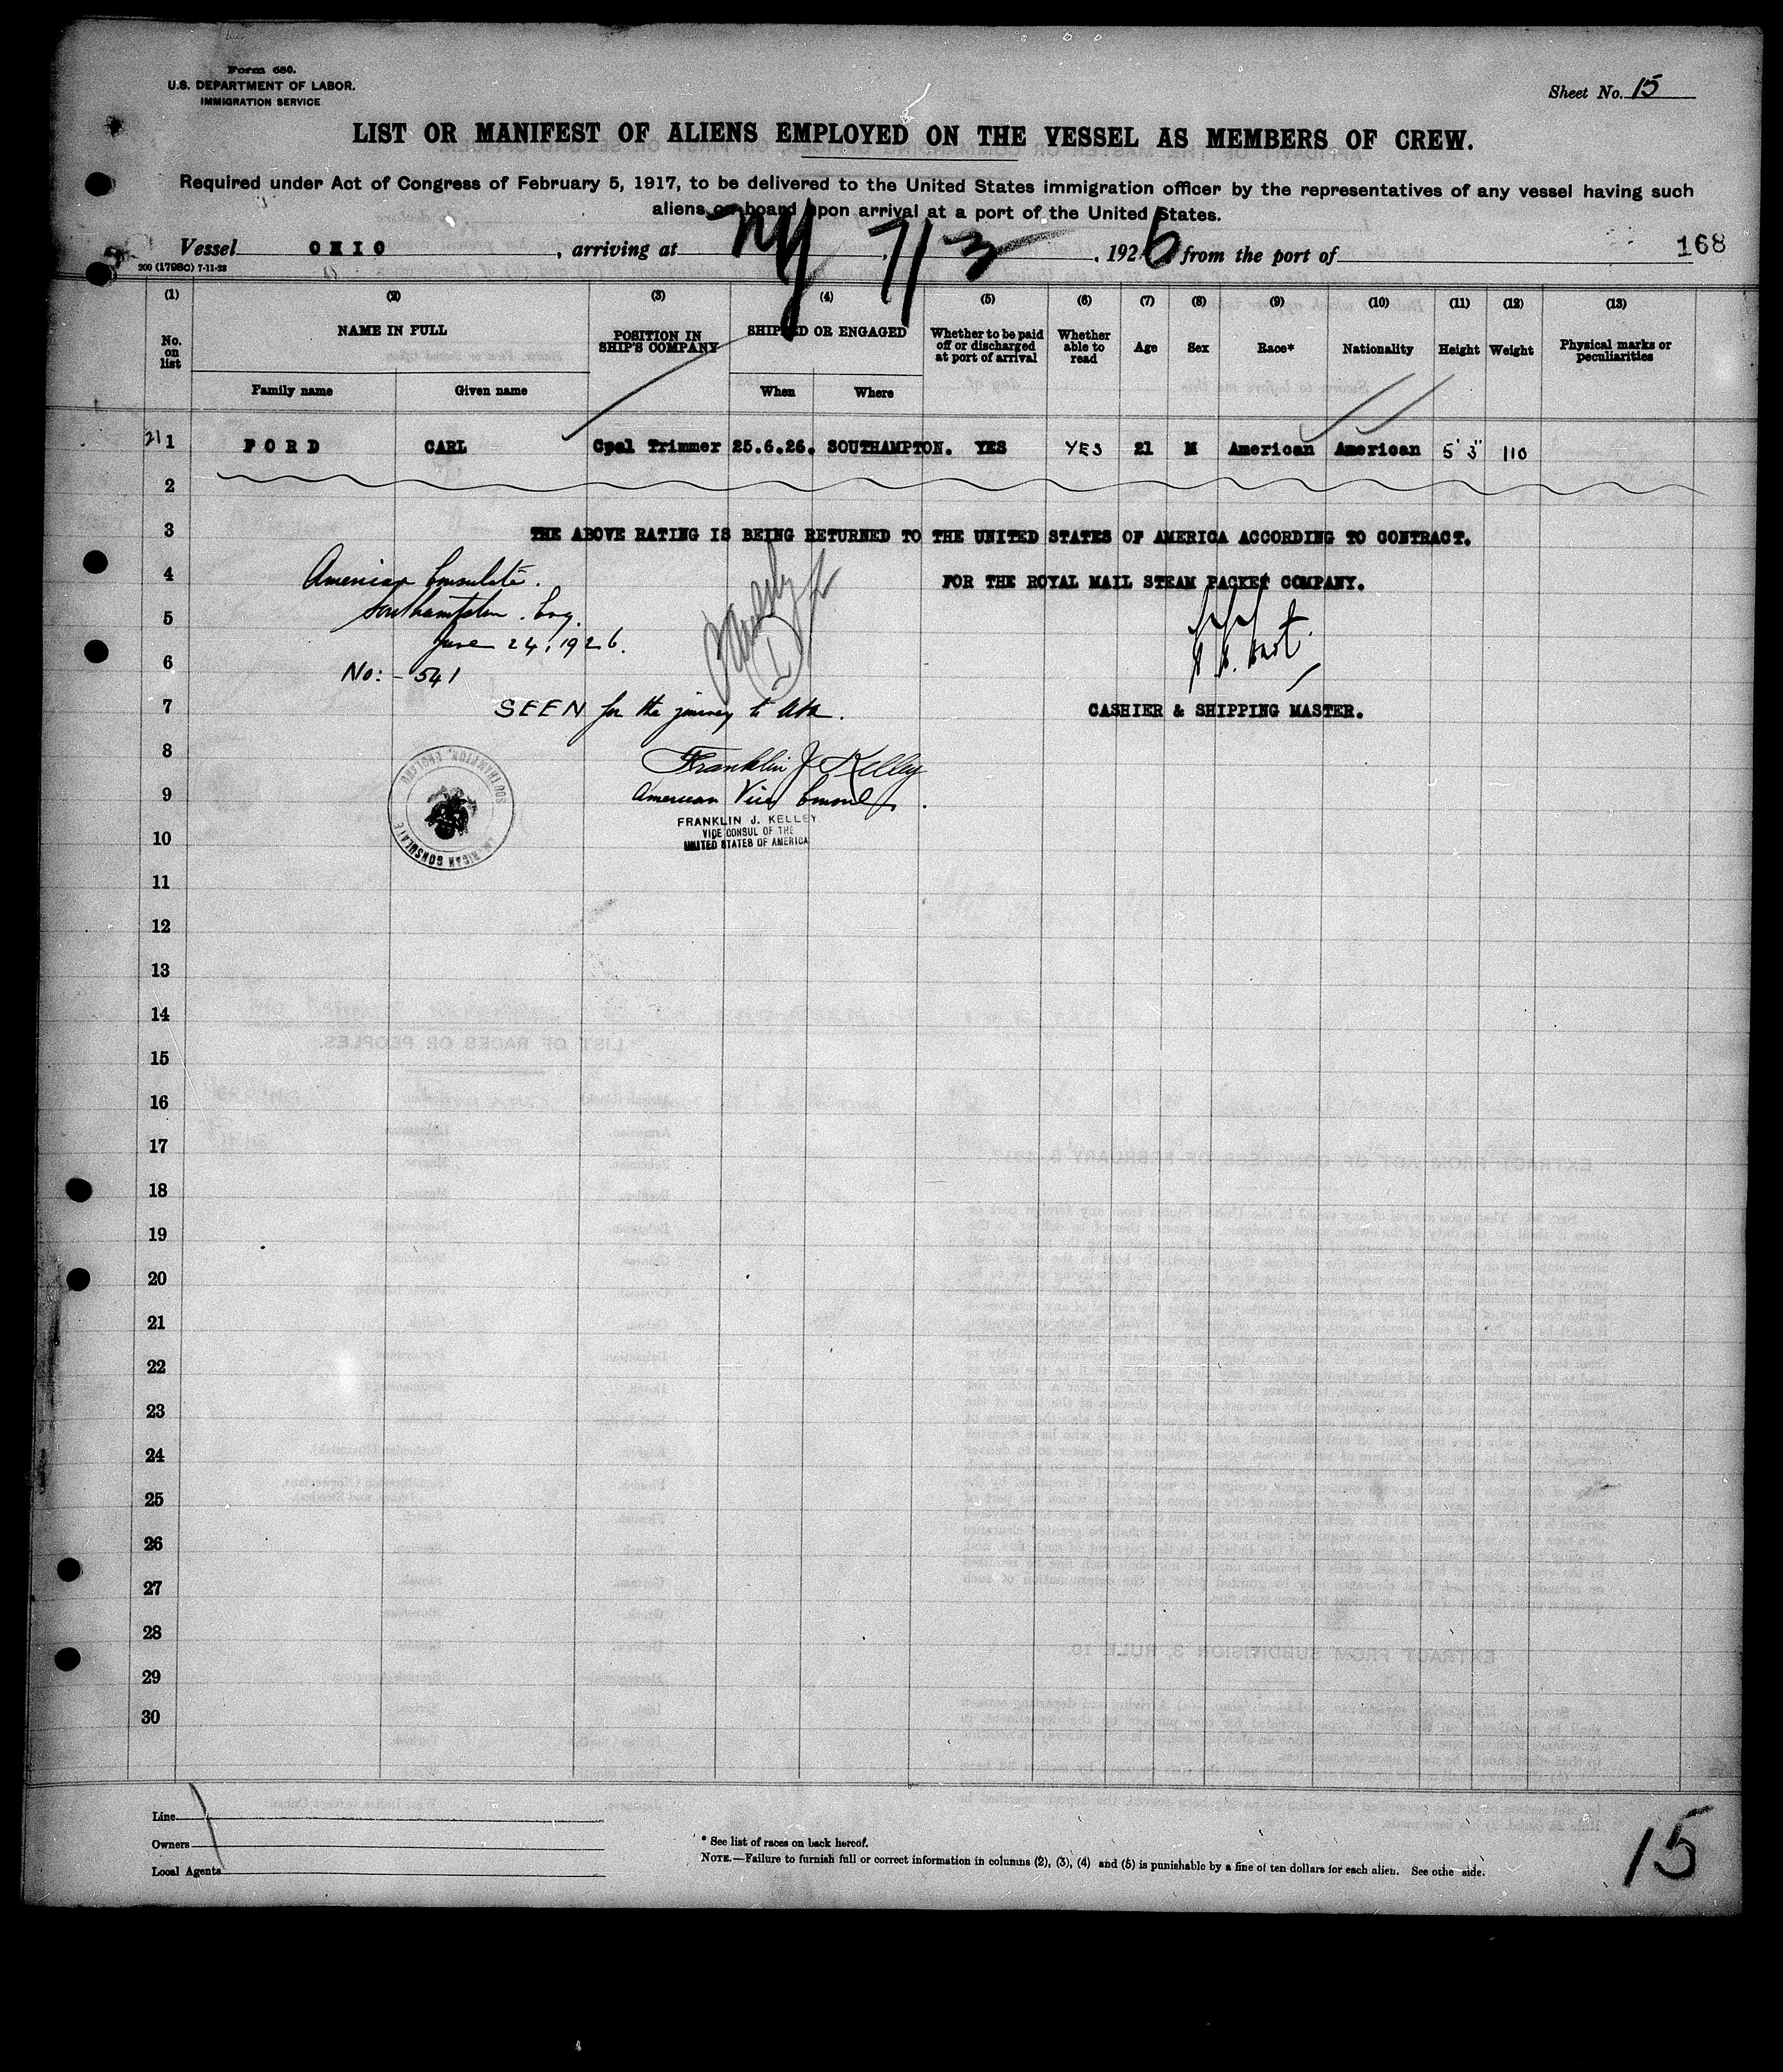 Form 680.
U.S. DEPARTMENT OF LABOR.
IMMIGRATION SERVICE
Sheet No. 15
LIST OR MANIFEST OF ALIENS EMPLOYED ON THE VESSEL AS MEMBERS OF CREW.
Required under Act of Congress of February 5, 1917, to be delivered to the United States immigration officer by the representatives of any vessel having such
aliens on board upon arrival at a port of the United States.
Vessel OHIO, arriving at NY 7/3, 1926 from the port of
168
200 (1798C) 7-11-23
(1) (2) (3) (4) (5) (6) (7) (8) (9) (10) (11) (12) (13)
No. on list
NAME IN FULL
Family name
Given name
POSITION IN SHIP'S COMPANY
SHIPPED OR ENGAGED
When
Where
Whether to be paid off or discharged at port of arrival
Whether able to read
Age
Sex
Race*
Nationality
Height
Weight
Physical marks or peculiarities
21 1 FORD CARL Cpal Trimmer 25.6.26. SOUTHAMPTON. YES YES 21 M American American 5' 3" 110
2
3 THE ABOVE RATING IS BEING RETURNED TO THE UNITED STATES OF AMERICA ACCORDING TO CONTRACT.
4 American Consulate. FOR THE ROYAL MAIL STEAM PACKET COMPANY.
5 Southampton. Eng.
June 24, 1926.
6 No: - 541
7 SEEN for the journey to USA. CASHIER & SHIPPING MASTER.
8 Franklin J Kelley
9 American Vice Consul.
FRANKLIN J. KELLEY
VICE CONSUL OF THE
10 UNITED STATES OF AMERICA
AMERICAN CONSULATE
SOUTHAMPTON, ENGLAND
11
12
13
14
15
16
17
18
19
20
21
22
23
24
25
26
27
28
29
30
Line
Owners
Local Agents
* See list of races on back hereof.
NOTE.—Failure to furnish full or correct information in columns (2), (3), (4) and (5) is punishable by a fine of ten dollars for each alien. See othe side.
15